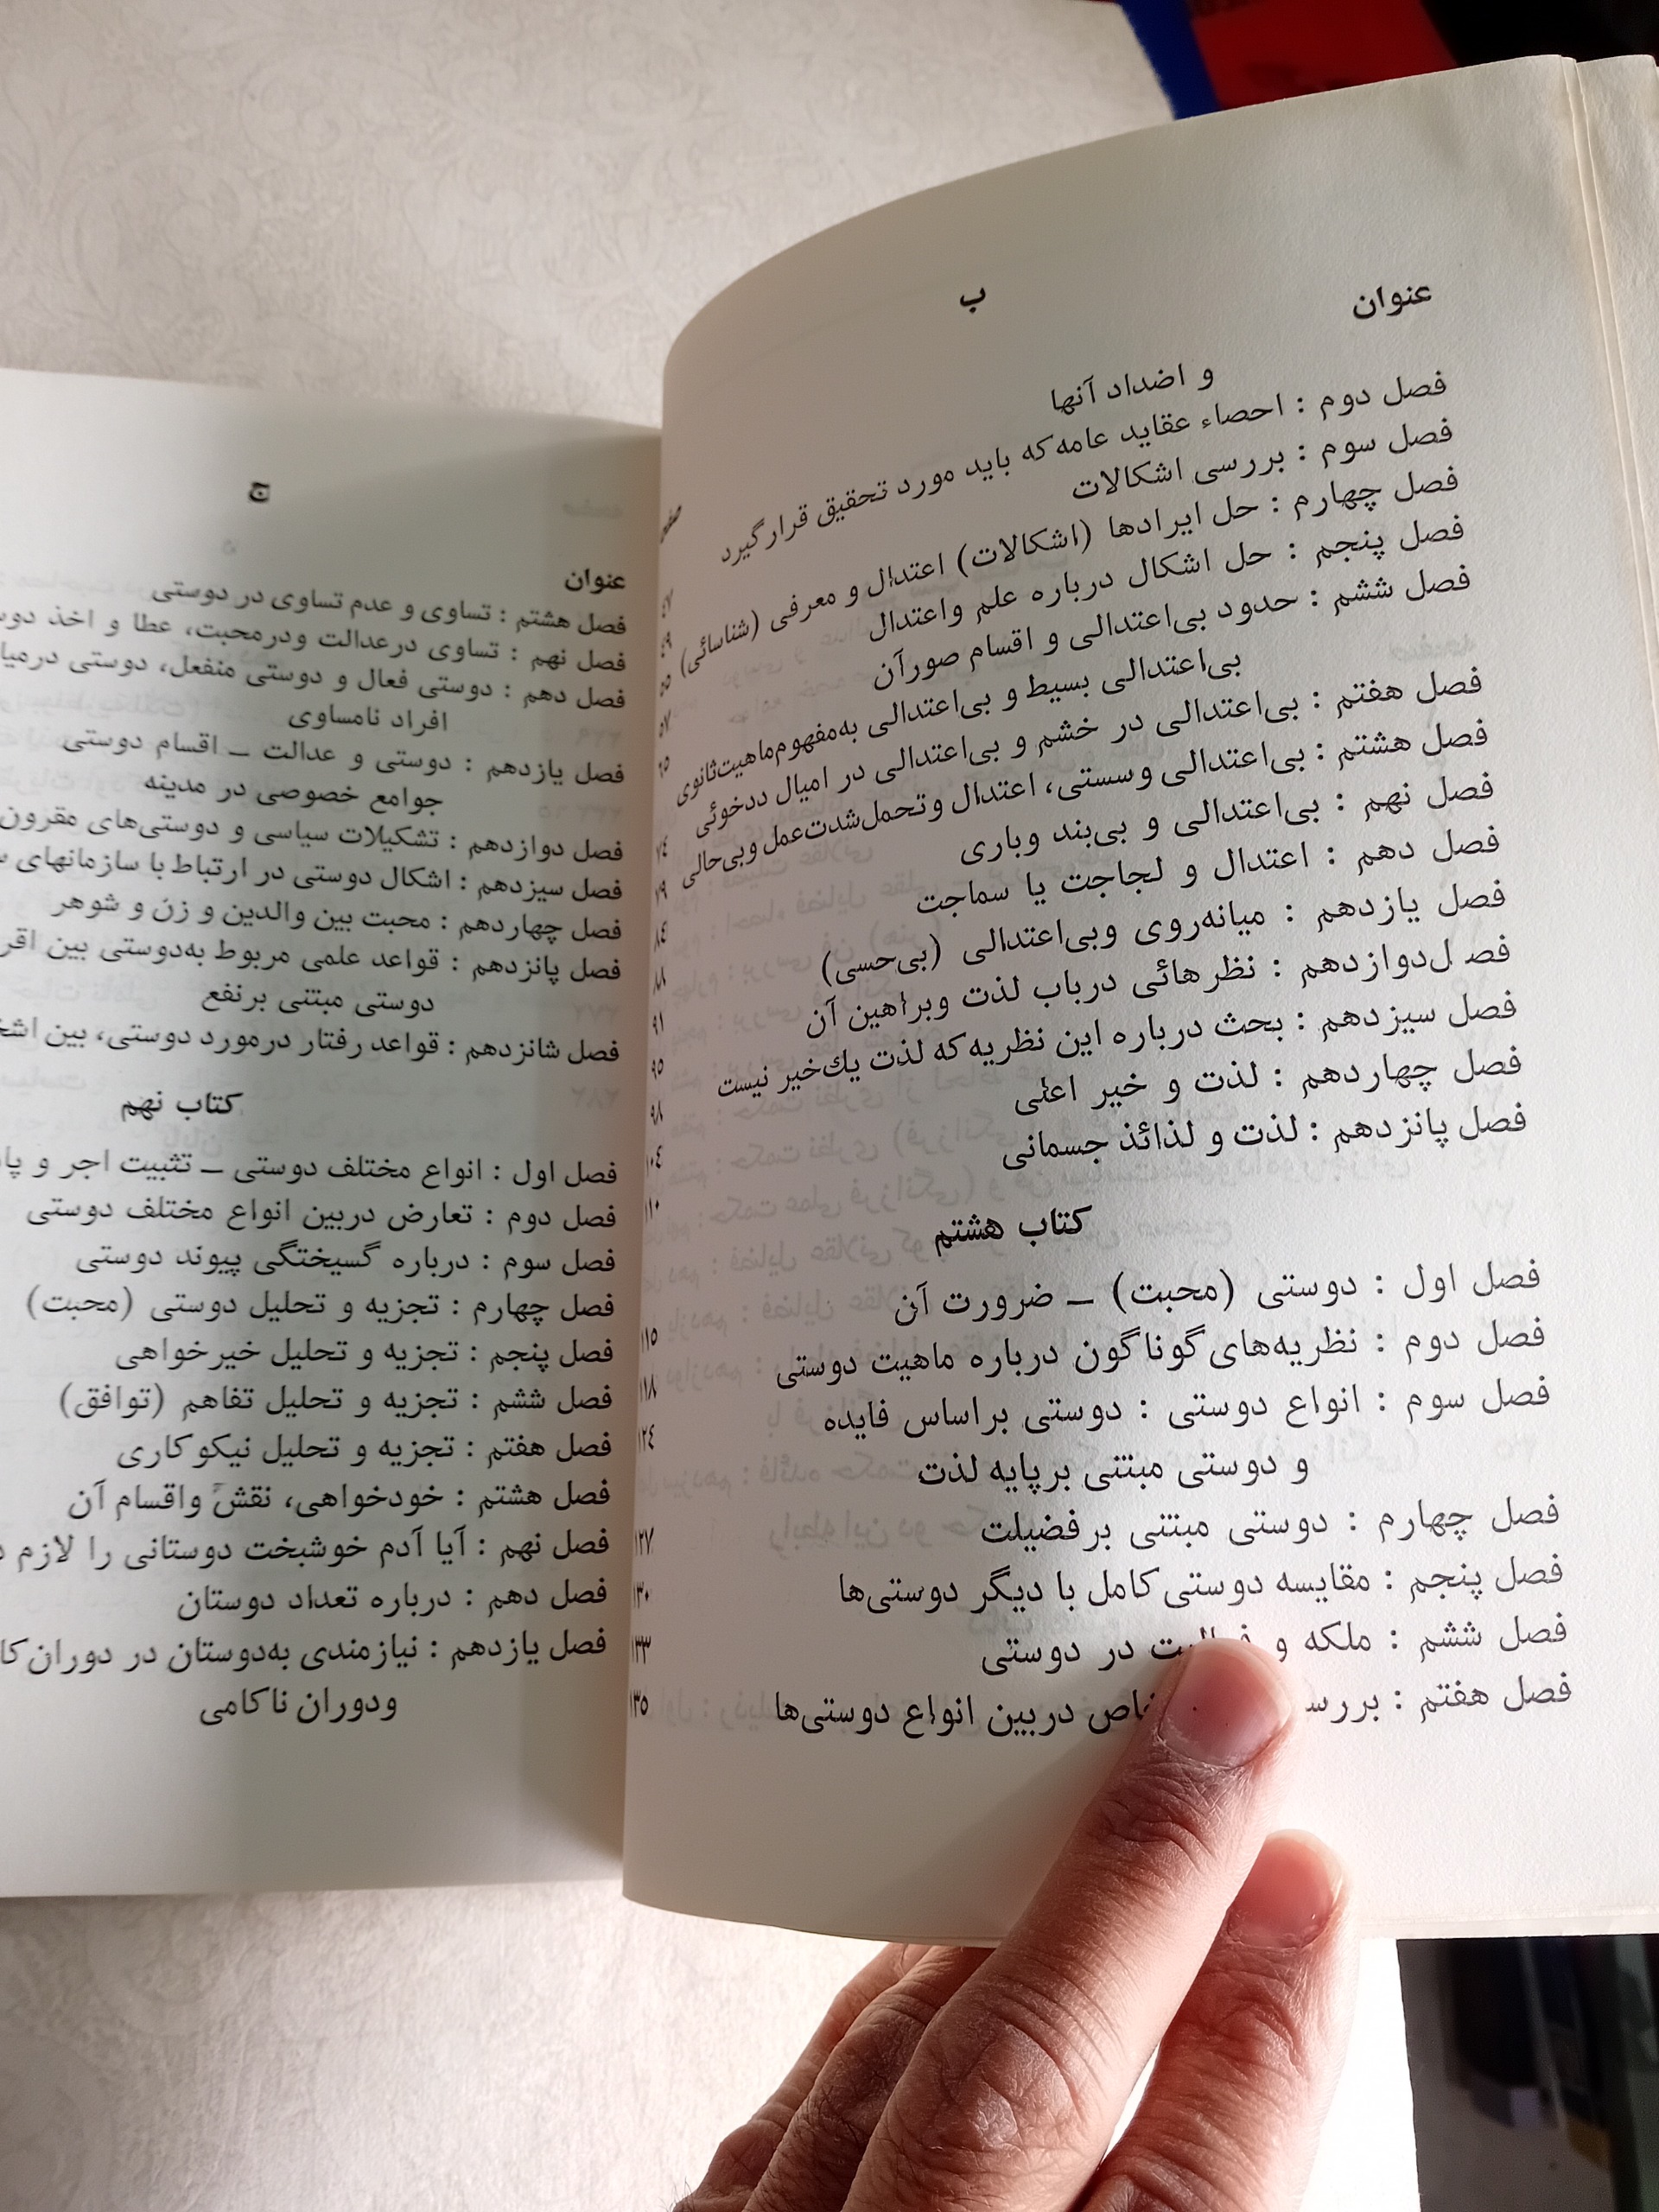 عنوان
ب
صفحه
و اضداد آنها
فصل دوم : احصاء عقاید عامه که باید مورد تحقیق قرار گیرد ٤٧
فصل سوم : بررسی اشکالات ٤٩
فصل چهارم : حل ایرادها (اشکالات) اعتدال و معرفی (شناسائی) ٥٥
فصل پنجم : حل اشکال درباره علم واعتدال ٥٧
فصل ششم : حدود بی‌اعتدالی و اقسام صورآن ٦٥
بی‌اعتدالی بسیط و بی‌اعتدالی به‌مفهوم‌ماهیت‌ثانوی
فصل هفتم : بی‌اعتدالی در خشم و بی‌اعتدالی در امیال ددخوئی ٧٤
فصل هشتم : بی‌اعتدالی وسستی، اعتدال وتحمل‌شدت‌عمل وبی‌حالی ٧٩
فصل نهم : بی‌اعتدالی و بی‌بند وباری ٨٤
فصل دهم : اعتدال و لجاجت یا سماجت ٨٨
فصل یازدهم : میانه‌روی وبی‌اعتدالی (بی‌حسی) ٩١
فصل‌دوازدهم : نظرهائی درباب لذت وبراهین آن ٩٥
فصل سیزدهم : بحث درباره این نظریه که لذت یك‌خیر نیست ٩٨
فصل چهاردهم : لذت و خیر اعلی ١٠٤
فصل پانزدهم : لذت و لذائذ جسمانی ١١٠
کتاب هشتم
فصل اول : دوستی (محبت) ــ ضرورت آن ١١٥
فصل دوم : نظریه‌های گوناگون درباره ماهیت دوستی ١١٨
فصل سوم : انواع دوستی : دوستی براساس فایده ١٢٤
و دوستی مبتنی برپایه لذت
فصل چهارم : دوستی مبتنی برفضیلت ١٢٧
فصل پنجم : مقایسه دوستی کامل با دیگر دوستی‌ها ١٣٠
فصل ششم : ملکه و در دوستی ١٣٣
فصل هفتم : دربین انواع دوستی‌ها ١٣٥
ج
عنوان
فصل هشتم : تساوی و عدم تساوی در دوستی
فصل نهم : تساوی درعدالت ودرمحبت، عطا و اخذ
فصل دهم : دوستی فعال و دوستی منفعل، دوستی
افراد نامساوی
فصل یازدهم : دوستی و عدالت ــ اقسام دوستی
جوامع خصوصی در مدینه
فصل دوازدهم : تشکیلات سیاسی و دوستی‌های مقرون
فصل سیزدهم : اشکال دوستی در ارتباط با سازمانهای
فصل چهاردهم : محبت بین والدین و زن و شوهر
فصل پانزدهم : قواعد علمی مربوط به‌دوستی بین
دوستی مبتنی برنفع
فصل شانزدهم : قواعد رفتار درمورد دوستی، بین
کتاب نهم
فصل اول : انواع مختلف دوستی ــ تثبیت اجر و
فصل دوم : تعارض دربین انواع مختلف دوستی
فصل سوم : درباره گسیختگی پیوند دوستی
فصل چهارم : تجزیه و تحلیل دوستی (محبت)
فصل پنجم : تجزیه و تحلیل خیرخواهی
فصل ششم : تجزیه و تحلیل تفاهم (توافق)
فصل هفتم : تجزیه و تحلیل نیکوکاری
فصل هشتم : خودخواهی، نقش واقسام آن
فصل نهم : آیا آدم خوشبخت دوستانی را لازم
فصل دهم : درباره تعداد دوستان
فصل یازدهم : نیازمندی به‌دوستان در دوران
ودوران ناکامی